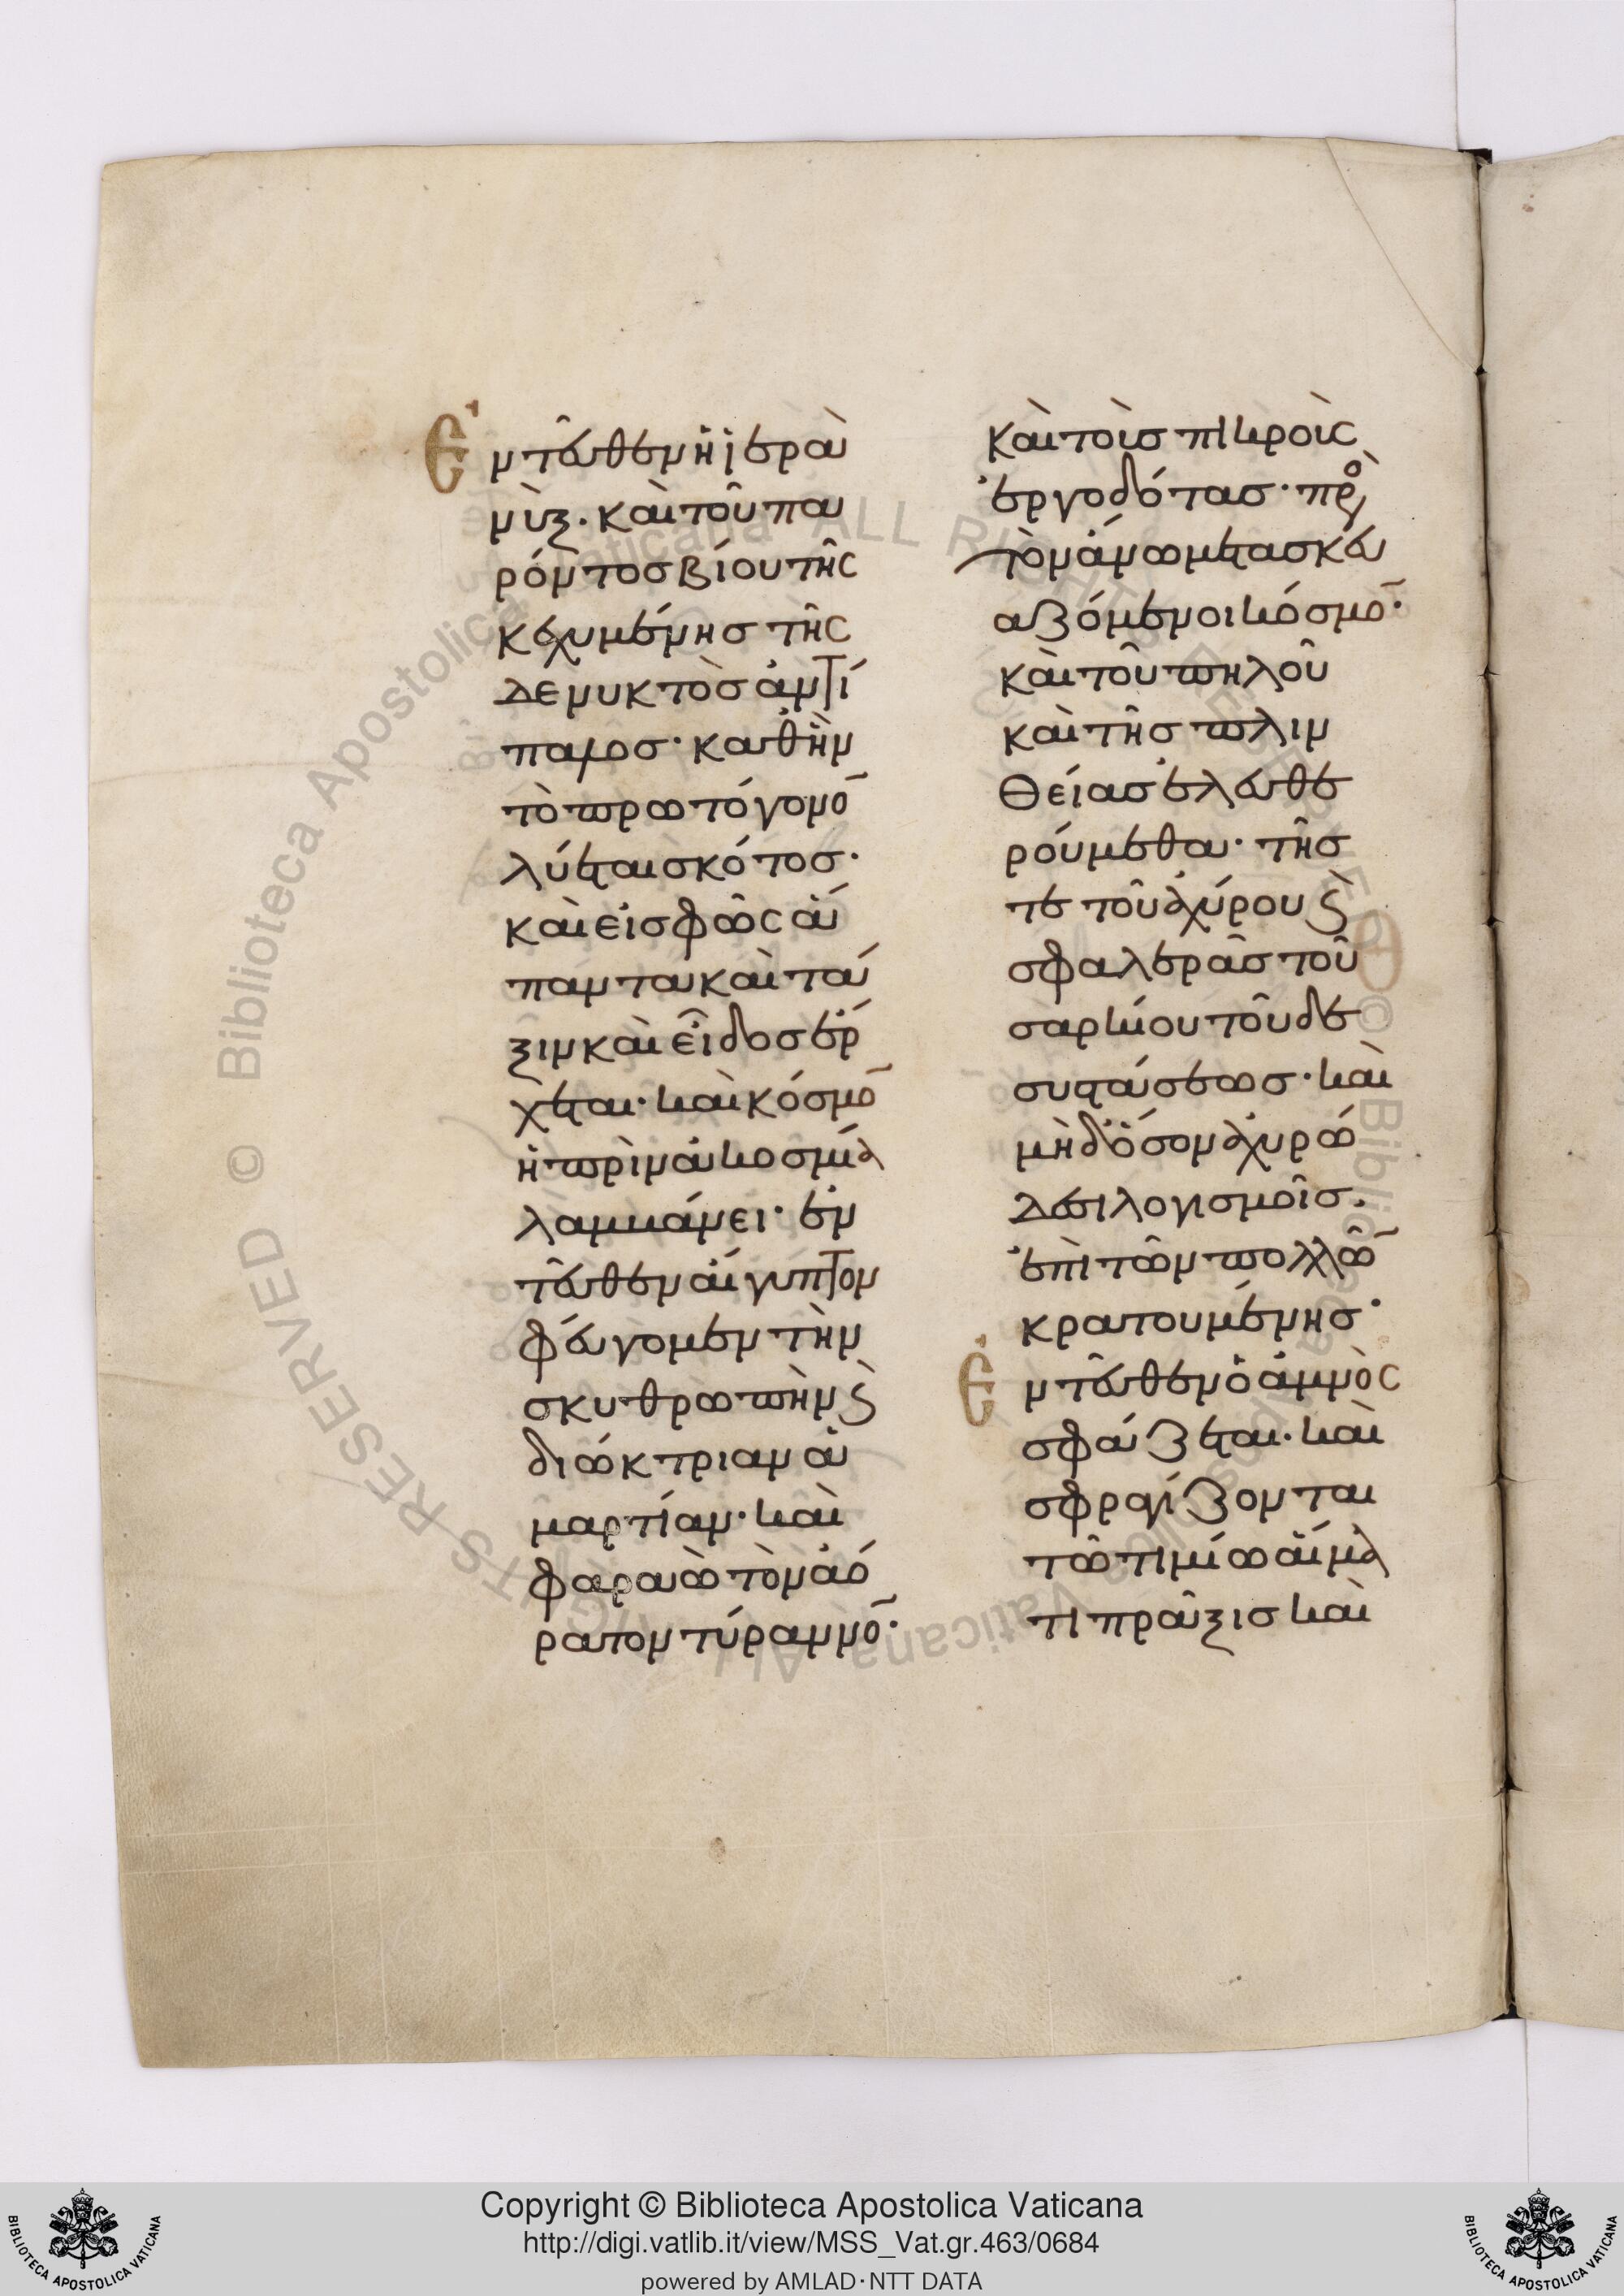 Ἐντεῦθεν ἡ ἱερὰ
νὺξ· καὶ τοῦ πα
ρόντος βίου τῆς
κεχυμένης τῆς
δε νυκτὸς ἀντί
παλος· καθ' ἣν
τὸ πρωτόγονο̄
λύεται σκότος·
καὶ εἰς φῶς ἅ
παντα καὶ τά
ξιν καὶ εἶδος ἔρ
χεται· καὶ κόσμο̄
ἡ πρὶν ἀκοσμία
λαμβάνει· ἐν
τεῦθεν αἴγυπτον
φεύγομεν τὴν
σκυθρωπὴν ϛ̀
διώκτριαν ἁ
μαρτίαν· καὶ
φαραὼ τὸν ἀό
ρατον τύραννο̄·
καὶ τοὺς πικροὺς
ἐργοδότας· πρὸς
τὸν ἄνω μετασκευ
αζόμενοι κόσμο̄·
καὶ τοῦ πηλοῦ
καὶ τῆς πλιν
θείας ἐλευθε
ρούμεθα· τῆς
τε τοῦ ἀχύρου ϛ̀
σφαλερᾶς τοῦ
σαρκίου τοῦδε
συστάσεως· καὶ
μηδ' ὅσον ἀχυρώ
δεσι λογισμοῖς·
ἐπὶ τῶν πολλῶ̄
κρατουμένης·
Ἐντεῦθεν ὁ ἀμνὸς
σφάζεται· καὶ
σφραγίζονται
τῶ τιμίω αἵμα
τι πρᾶξις καὶ
Copyright © Biblioteca Apostolica Vaticana
http://digi.vatlib.it/view/MSS_Vat.gr.463/0684
powered by AMLAD·NTT DATA
BIBLIOTECA APOSTOLICA VATICANA
BIBLIOTECA APOSTOLICA VATICANA
© Biblioteca Apostolica Vaticana ALL RIGHTS RESERVED